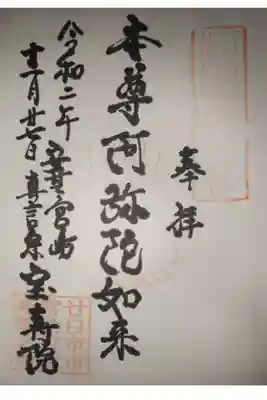 奉拝
本尊阿弥陀如来
令和二年 安芸宮島
十一月廿七日 真言宗 宝寿院